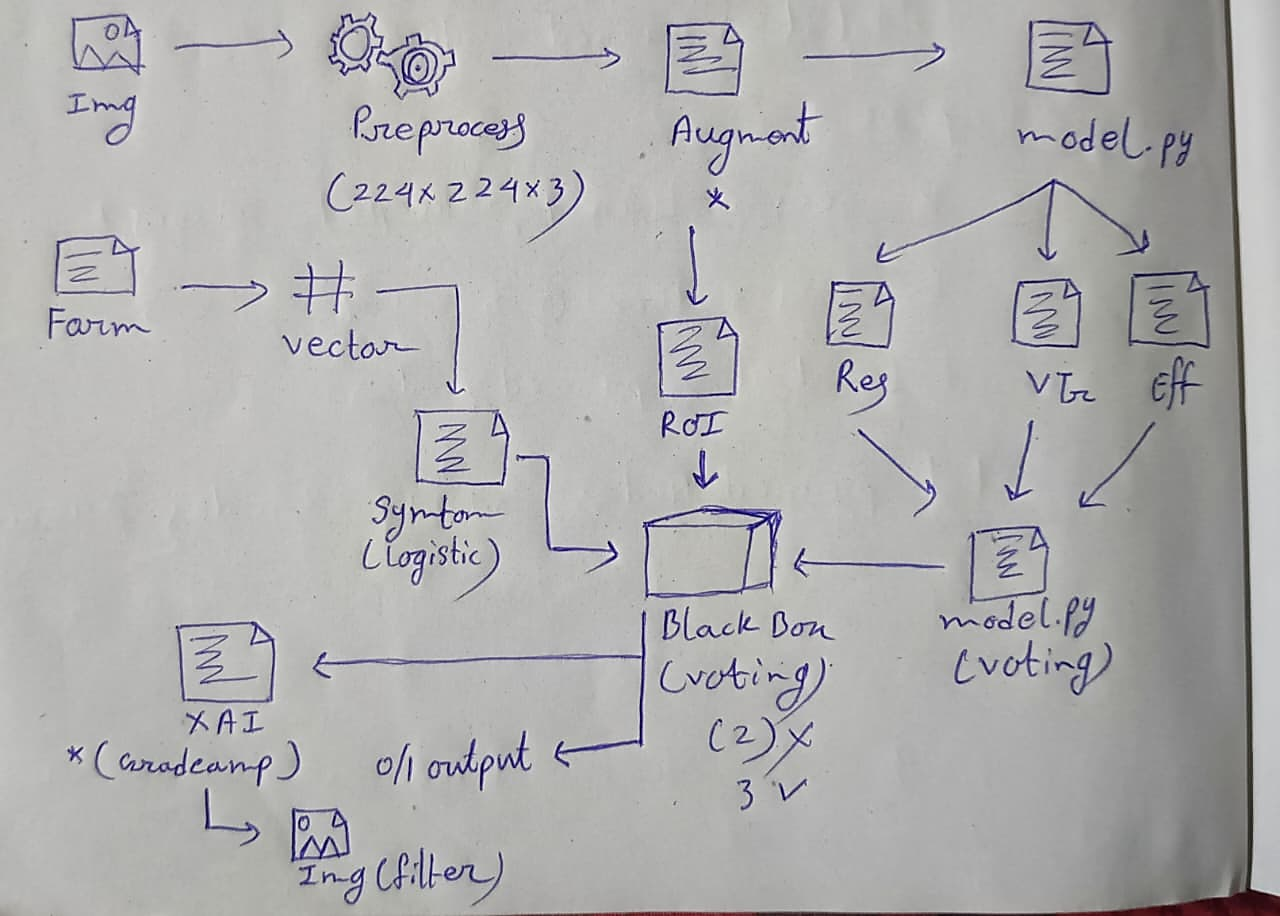 Img
Preprocess
(224x224x3)
Augment
*
model.py
Farm
#
vector
ROI
Res
Eff
Symtom
(logistic)
Black Box
(voting)
(2) x
3 ✓
model.py
(voting)
XAI
*(Gradcamp)
0/1 output
Img (filter)